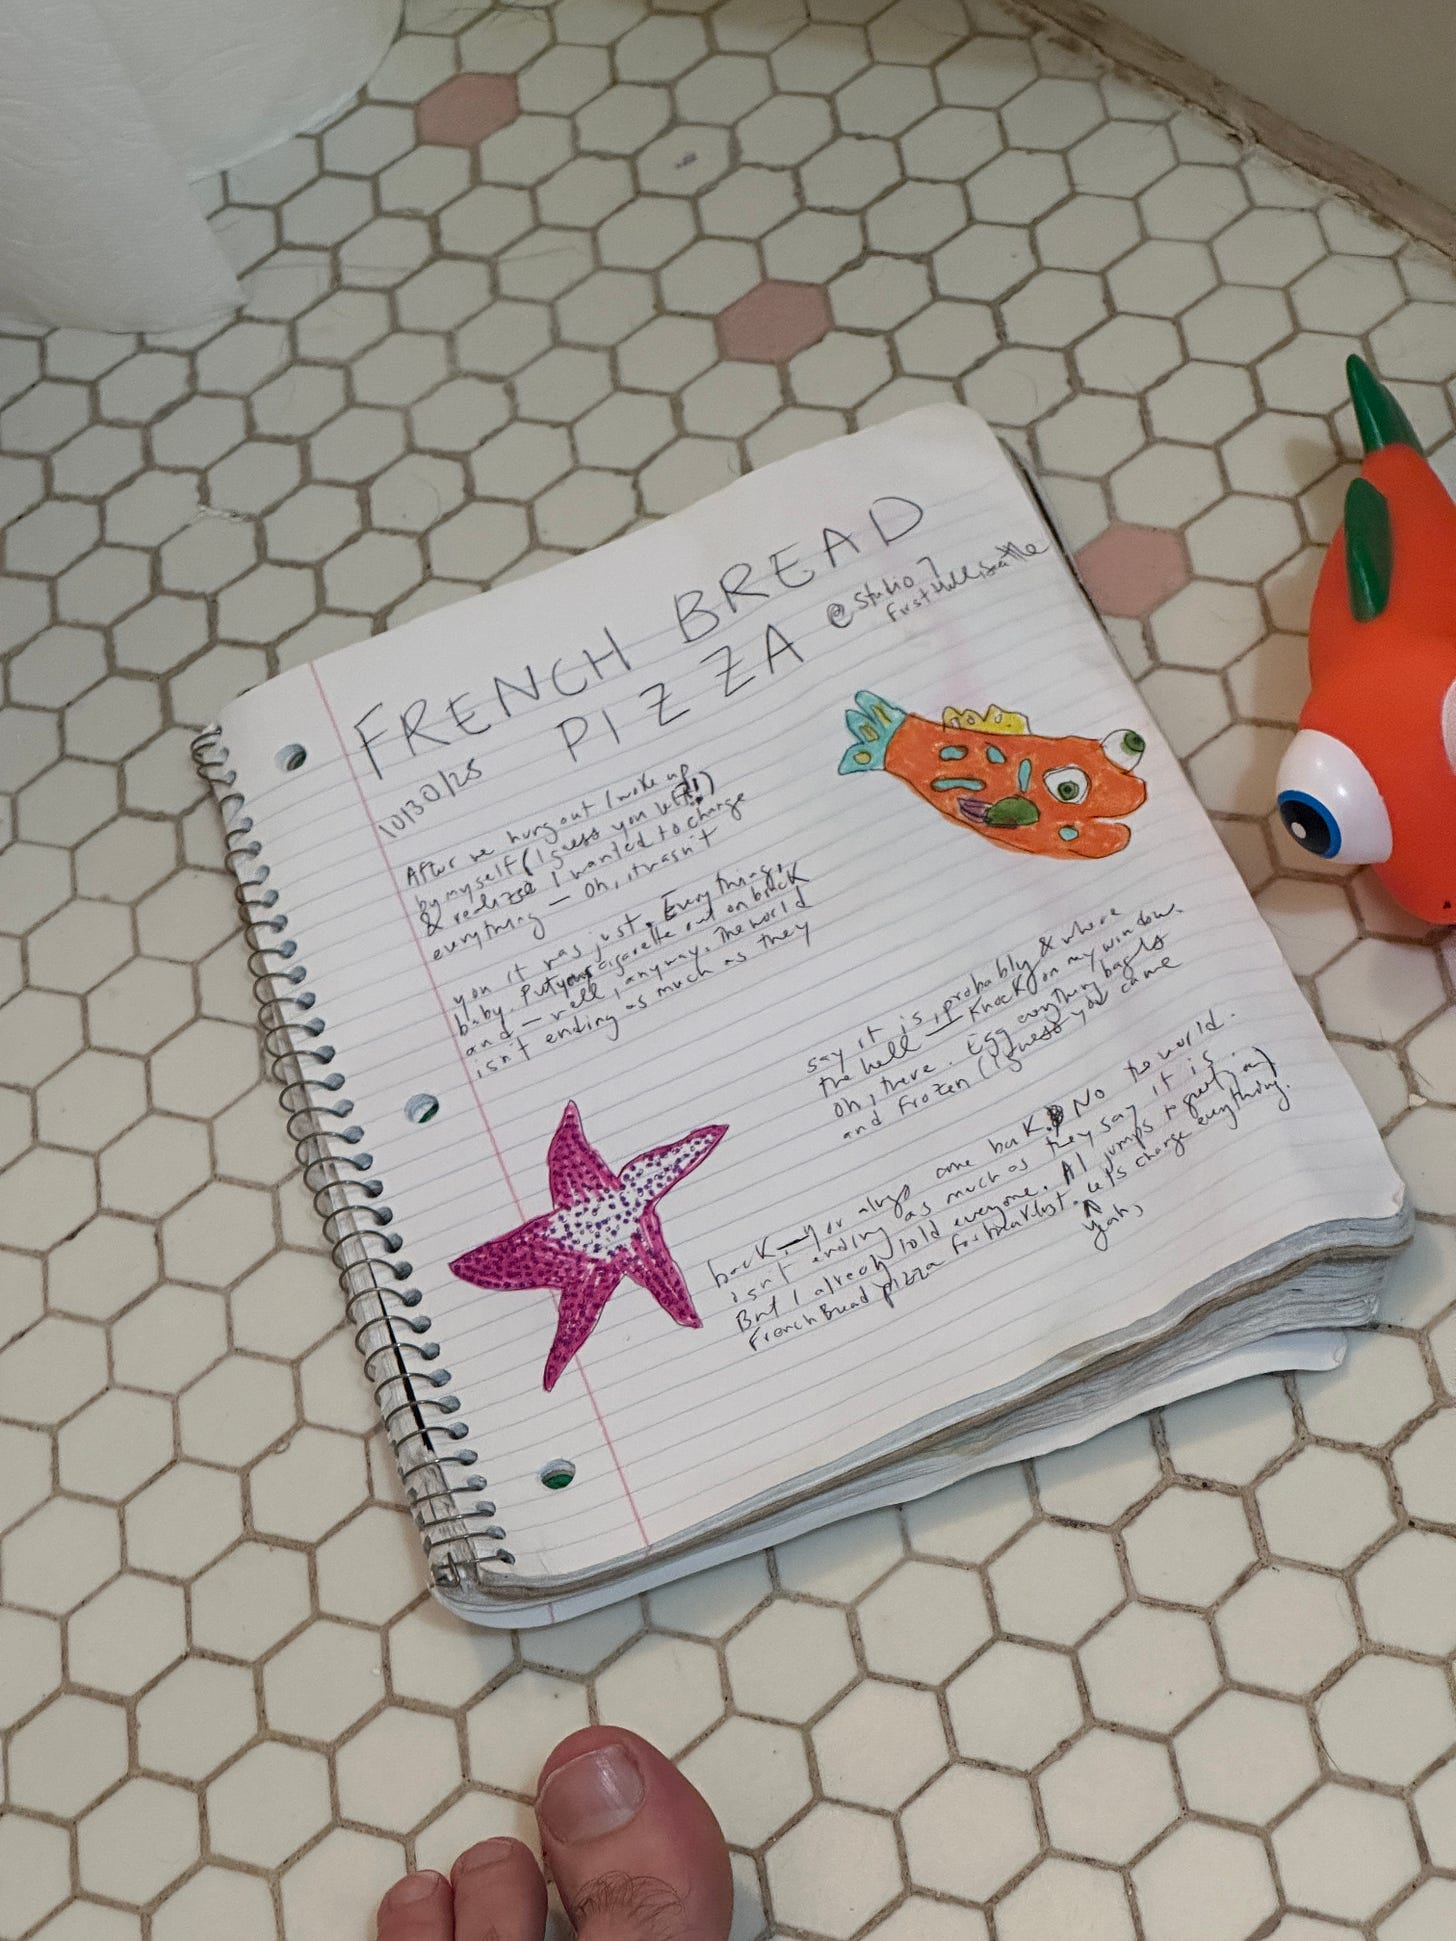 FRENCH BREAD
PIZZA @ Studio 7
First Hill, Seattle
10/30/25
After we hung out I woke up
by myself (I guess you left?!)
& realized I wanted to change
everything — Oh, it wasn't
you it was just. Everything,
baby. Put your cigarette out on brick
and — well, anyway. The world
isn't ending as much as they
say it is, probably & where
the hell — Knock on my window.
Oh, there. Egg everything bagels
and frozen (I guess you came
back — You always come back. No the world
isn't ending as much as they say it is.
But I already told everyone. Al jumps to greet, and
French Bread pizza for breakfast. Let's change everything.
Yeah,